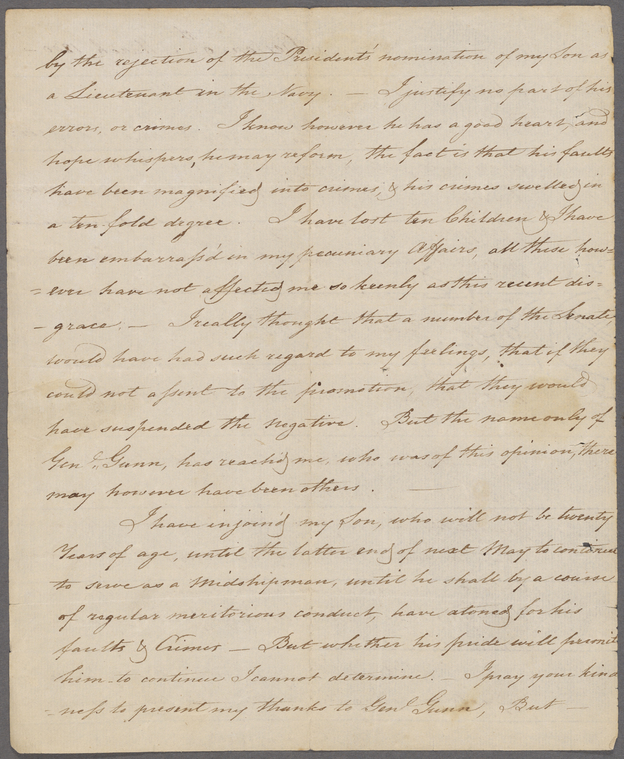 by the rejection of the Presidents' nomination of my Son as
a Lieutenant in the Navy. — I justify no part of his
errors, or crimes. I know however he has a good heart, and
hope whispers, he may reform, the fact is that his faults
have been magnified into crimes, & his crimes swelled in
a ten-fold degree. I have lost ten Children & I have
been embarrass'd in my pecuniary Affairs, all these how=
=ever have not affected me so keenly as this recent dis=
-grace. — I really thought that a number of the Senate,
would have had such regard to my feelings, that if they
could not assent to the promotion, that they would
have suspended the negative. But the name only of
Genl. Gunn, has reached me, who was of this opinion, there
may however have been others. —
I have injoined my Son, who will not be twenty
Years of age, until the latter end of next May to continue
to serve as a Midshipman, until he shall by a course
of regular meritorious conduct, have atoned for his
faults & Crimes — But whether his pride will permit
him to continue I cannot determine. — I pray your kind
-ness to present my thanks to Genl. Gunn, But —